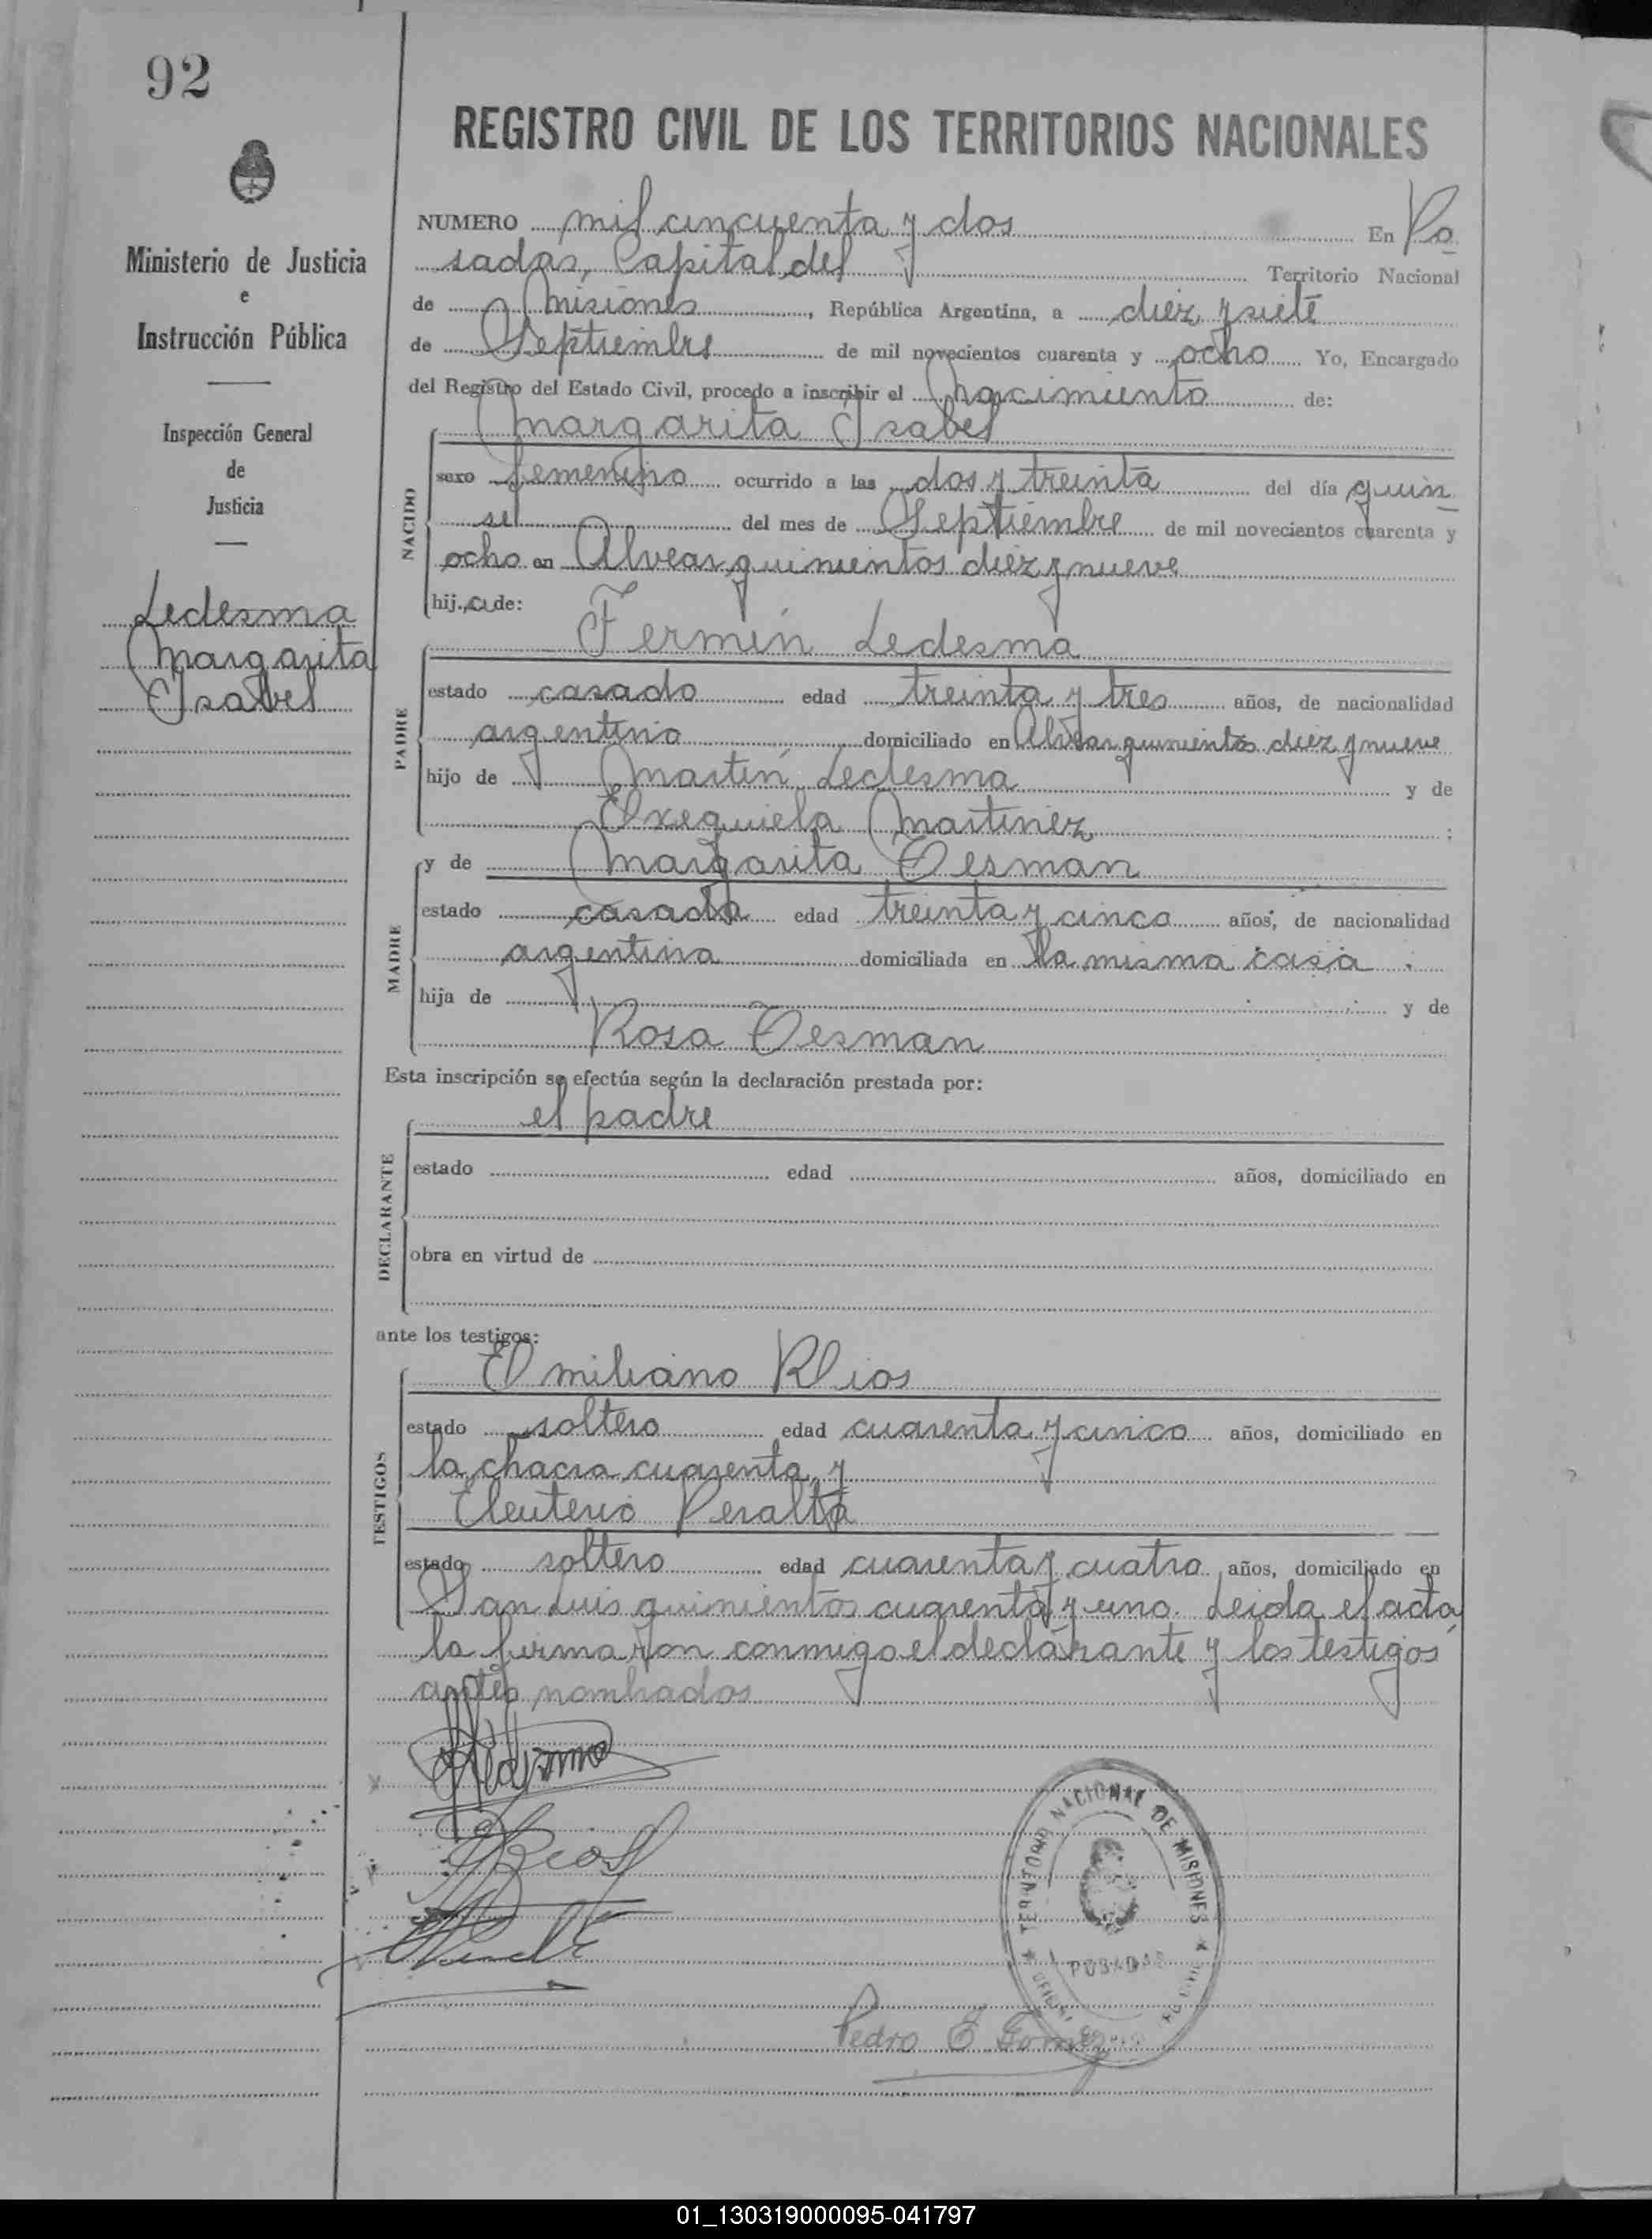 92
REGISTRO CIVIL DE LOS TERRITORIOS NACIONALES
Ministerio de Justicia
e
Instrucción Pública
Inspección General
de
Justicia
Ledesma
Margarita
Isabel
NUMERO mil cincuenta y dos En Po
sadas, Capital del Territorio Nacional
de Misiones, República Argentina, a diez y siete
de Septiembre de mil novecientos cuarenta y ocho Yo, Encargado
del Registro del Estado Civil, procedo a inscribir el Nacimiento de:
Margarita Isabel
NACIDO
sexo femenino ocurrido a las dos y treinta del día quin
se del mes de Septiembre de mil novecientos cuarenta y
ocho en Alvear quinientos diez y nueve
hij.a de:
Fermín Ledesma
PADRE
estado casado edad treinta y tres años, de nacionalidad
argentino domiciliado en Alvear quinientos diez y nueve
hijo de Martín Ledesma y de
Exequiela Martinez ;
MADRE
y de Margarita Oesman
estado casada edad treinta y cinco años, de nacionalidad
argentina domiciliada en la misma casa
hija de y de
Rosa Oesman
Esta inscripción se efectúa según la declaración prestada por:
el padre
DECLARANTE
estado edad años, domiciliado en
obra en virtud de
ante los testigos:
Emiliano Rios
TESTIGOS
estado soltero edad cuarenta y cinco años, domiciliado en
la chacra cuarenta, y
Eleuterio Peralta
estado soltero edad cuarenta y cuatro años, domiciliado en
San Luis quinientos cuarenta y uno. Leida el acta
la firmaron conmigo el declarante y los testigos
antes nombrados
TERRITORIO NACIONAL DE MISIONES
POSADAS
Pedro E. Gomez
01_130319000095-041797